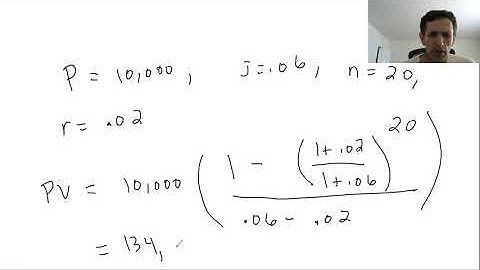 P = 10,000 , j=.06 , n=20,
r = .02
PV = 10,000 ( (1 - ((1+.02)/(1+.06))^20) / (.06 - .02) )
= 134,